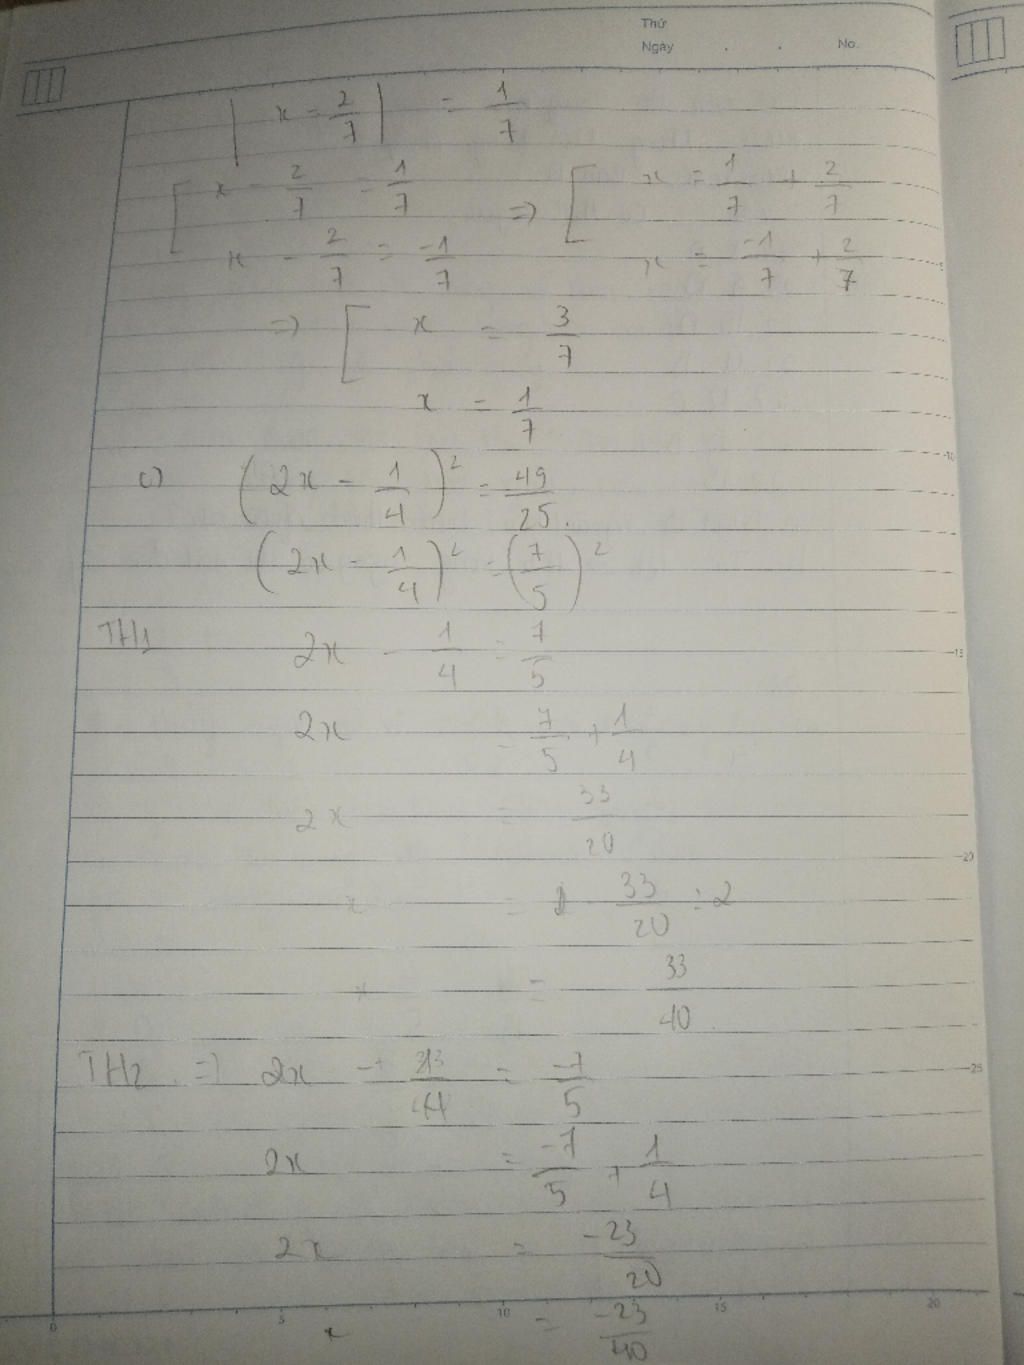 Thứ
Ngày . . No.
| x - 2/7 | = 1/7
[ x - 2/7 = 1/7 => [ x = 1/7 + 2/7
x - 2/7 = -1/7 x = -1/7 + 2/7
=> [ x = 3/7
x = 1/7
c) (2x - 1/4)² = 49/25.
(2x - 1/4)² = (7/5)²
TH1 2x - 1/4 = 7/5
2x = 7/5 + 1/4
2x = 33/20
x = 33/20 : 2
x = 33/40
TH2 => 2x - = -7/5
2x = -7/5 + 1/4
2x = -23/20
x = -23/40
0 5 10 15 20
-10
-15
-20
-25